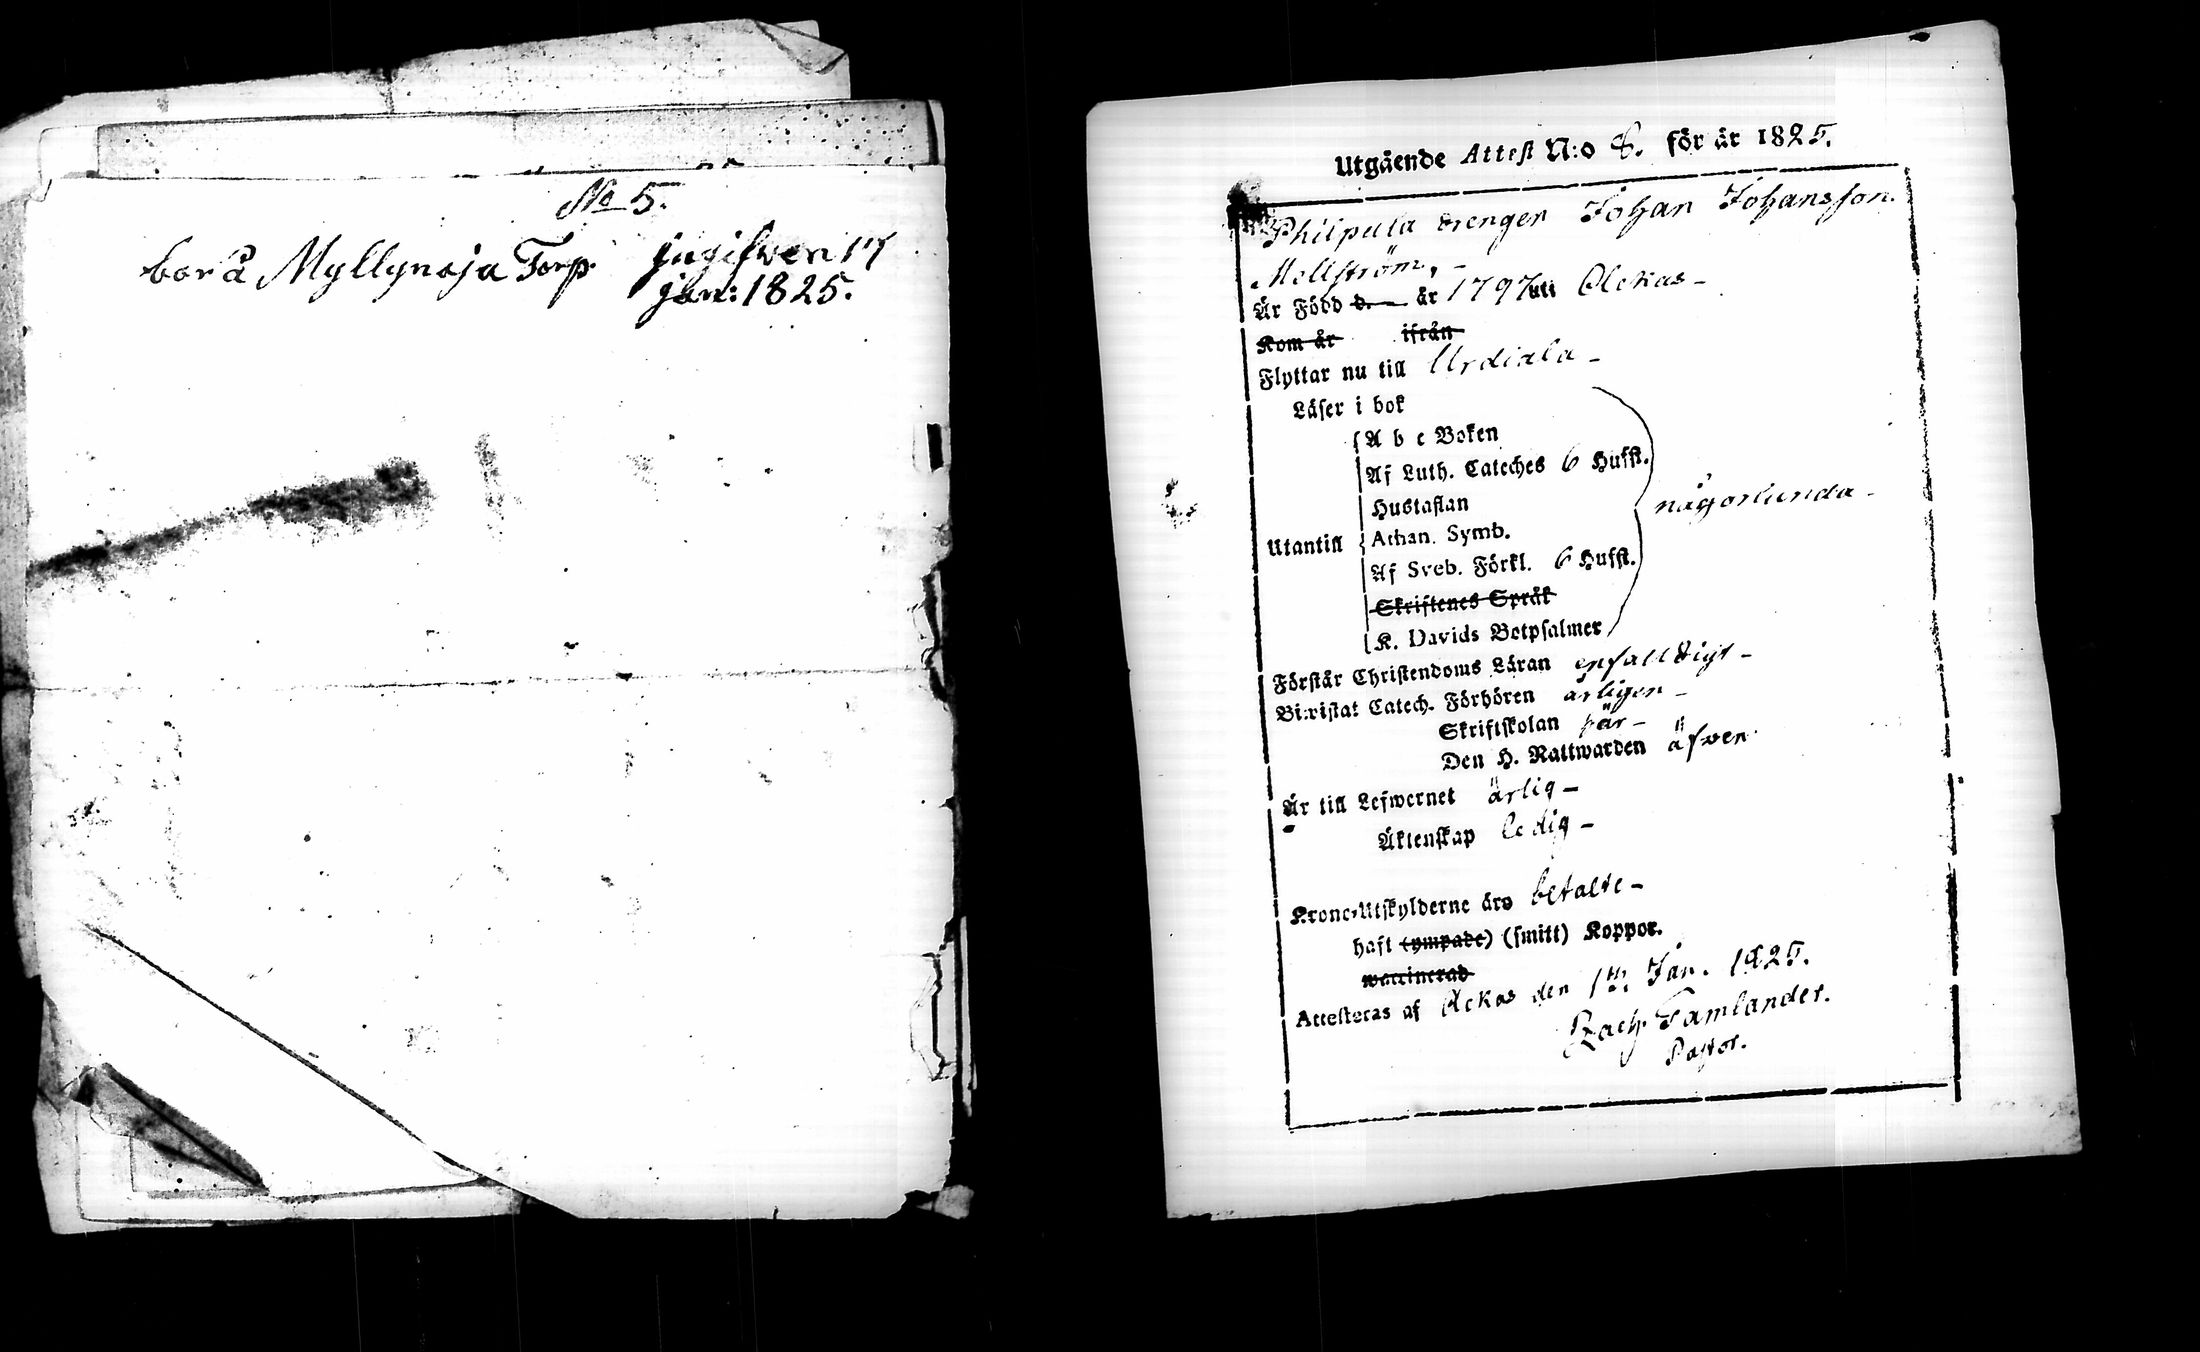 No 5.
bor å Myllynoja Torp. ingifven 17
jan: 1825.
Utgående Attest N:o 8. för år 1825.
Philpula drengen Johan Johansson
Mellström, -
Är Född d. — år 1797 uti Ackas -
Kom år ifrån
Flyttar nu till Urdiala -
Läser i bok
A b c Boken
Af Luth. Cateches 6 Hufst.
Hustaflan
någorlunda -
Utantill Athan. Symb.
Af Sveb. Förkl. 6 Hufst.
Skriftenes Språk
K. Davids Botpsalmer
Förstår Christendoms Läran enfalldigt -
Biwistat Catech. Förhören årligen -
Skriftskolan här -
Den H. Nattwarden äfven
Är till Lefwernet ärlig -
Äktenskap ledig -
Krono-Utskylderne äro betalte -
haft (ympade) (smitt) Koppor.
waccinerad
Attesteras af Ackas den Jan. 1825.
Zach Tamlander.
Pastor.